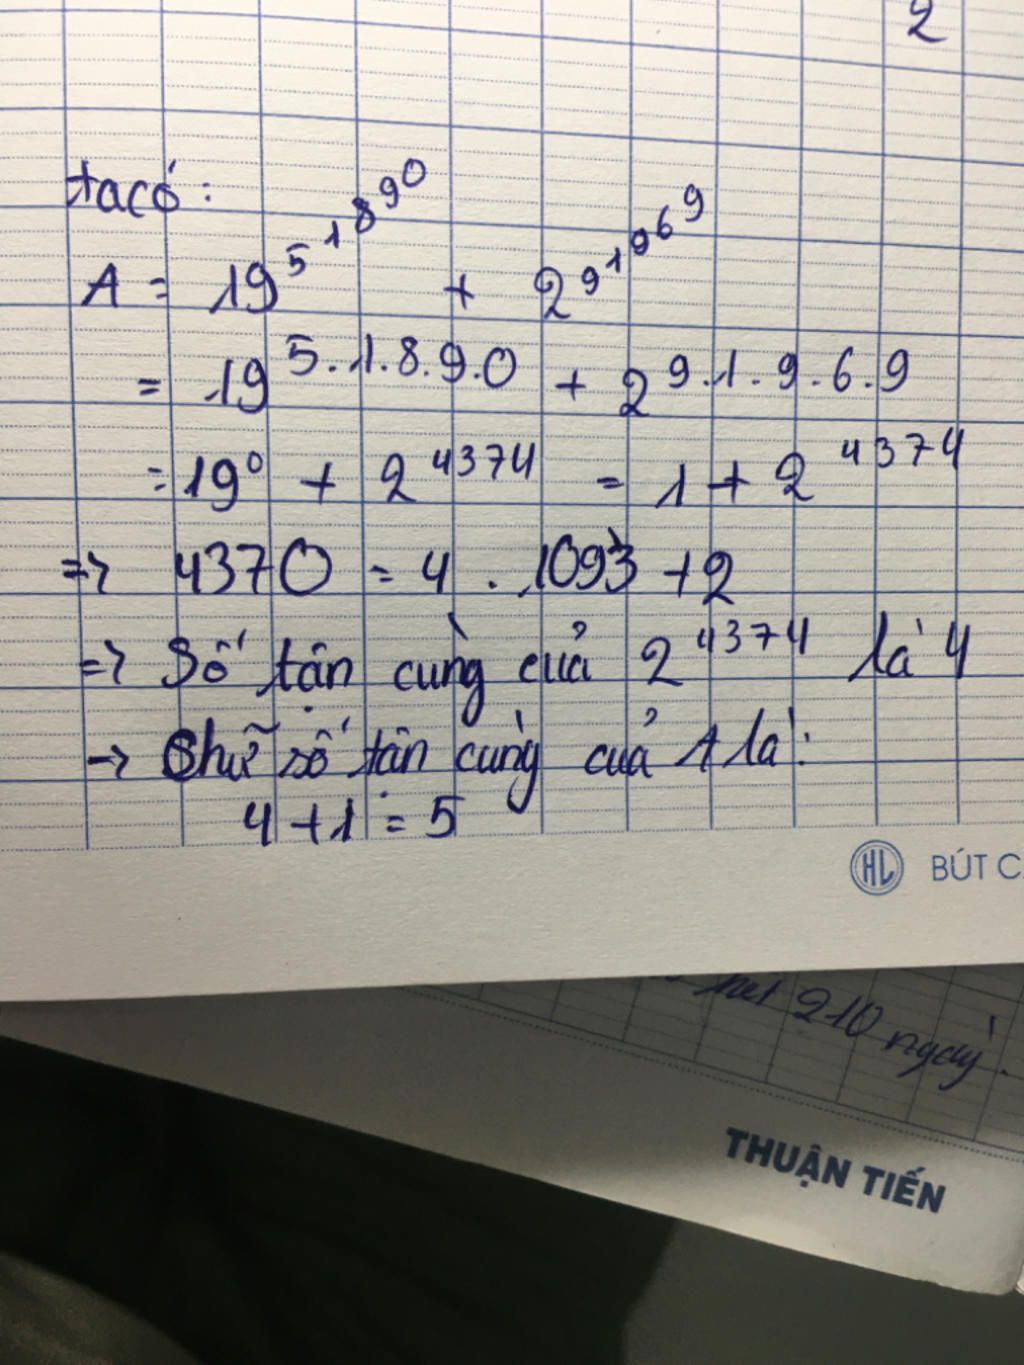 2
ta có:
A = 19^5^1^8^9^0 + 2^9^1^9^6^9
= 19^5.1.8.9.0 + 2^9.1.9.6.9
= 19^0 + 2^4374 = 1 + 2^4374
=> 4370 = 4 . 1093 + 2
=> Số tận cùng của 2^4374 là 4
-> Chữ số tận cùng của A là:
4 + 1 = 5
HL BÚT C
hết 210 ngày.
THUẬN TIẾN